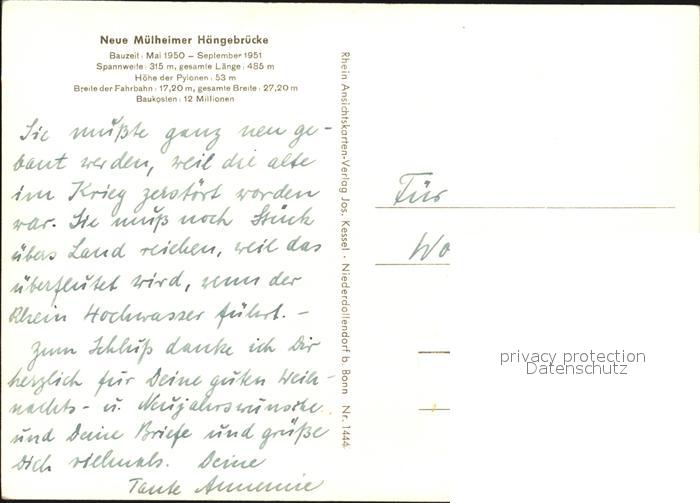 Neue Mülheimer Hängebrücke
Bauzeit: Mai 1950 – September 1951
Spannweite: 315 m, gesamte Länge: 485 m
Höhe der Pylonen: 53 m
Breite der Fahrbahn: 17,20 m, gesamte Breite: 27,20 m
Baukosten: 12 Millionen
Sie mußte ganz neu ge-
baut werden, weil die alte
im Krieg zerstört worden
war. Sie muß noch Stück
übers Land reichen, weil das
überflutet wird, wenn der
Rhein Hochwasser führt. –
Zum Schluß danke ich Dir
herzlich für Deine guten Weih-
nachts- u. Neujahrswünsche
und Deine Briefe und grüße
Dich vielmals. Deine
Tante Annemie
Rhein Ansichtskarten-Verlag Jos. Kessel · Niederdollendorf b. Bonn Nr. 1444
Für
Wo
privacy protection
Datenschutz